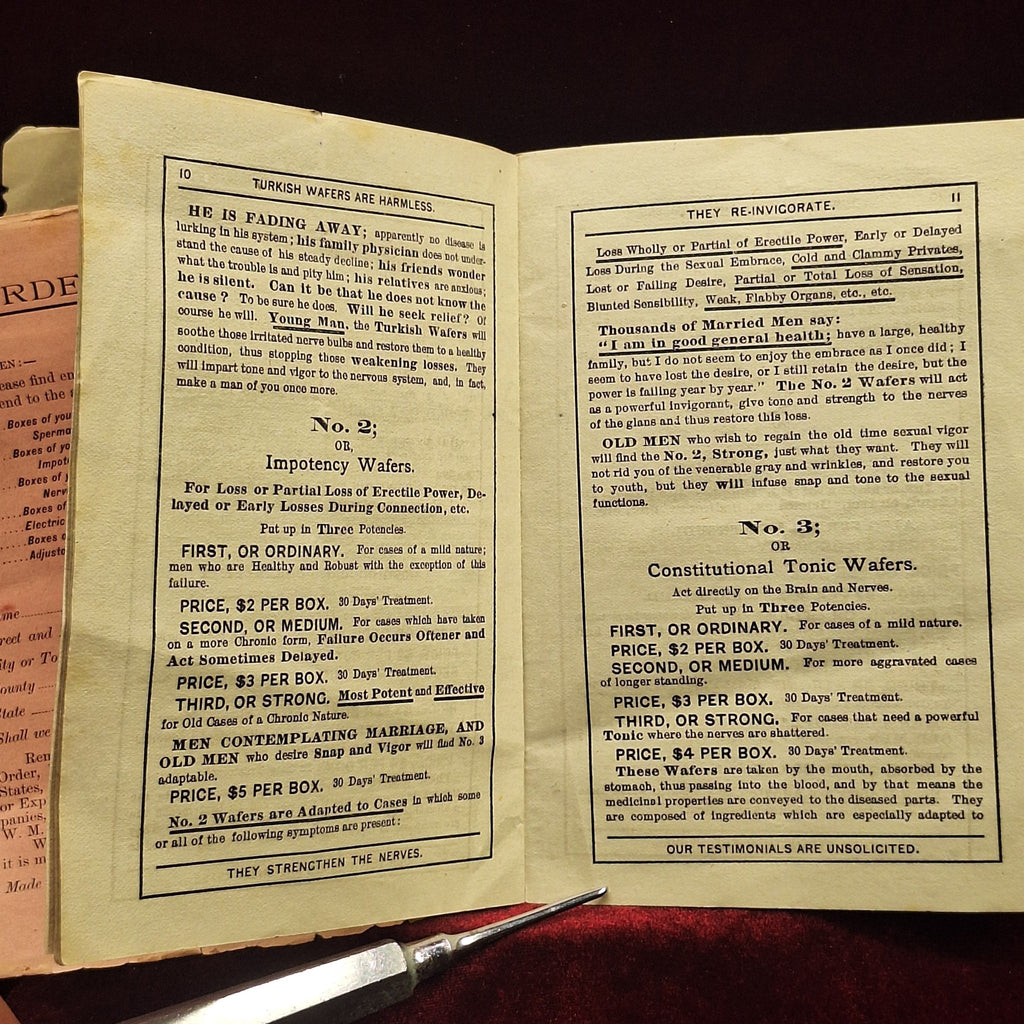 RDE
EN:—
ease find en
end to the
Boxes of you
Sperma
Boxes of yo
Impot
Boxes of y
Nerv
Boxes of
Electric
Boxes o
Adjusto
me
reet and
ity or To
ounty
State
Shall we
Ren
Order,
States,
or Exp
panies,
W. M.
W
it is m
Made
10
TURKISH WAFERS ARE HARMLESS.
HE IS FADING AWAY; apparently no disease is
lurking in his system; his family physician does not under-
stand the cause of his steady decline; his friends wonder
what the trouble is and pity him; his relatives are anxious;
he is silent. Can it be that he does not know the
cause? To be sure he does. Will he seek relief? Of
course he will. Young Man, the Turkish Wafers will
soothe those irritated nerve bulbs and restore them to a healthy
condition, thus stopping those weakening losses. They
will impart tone and vigor to the nervous system, and, in fact,
make a man of you once more.
No. 2;
OR,
Impotency Wafers.
For Loss or Partial Loss of Erectile Power, De-
layed or Early Losses During Connection, etc.
Put up in Three Potencies.
FIRST, OR ORDINARY. For cases of a mild nature;
men who are Healthy and Robust with the exception of this
failure.
PRICE, $2 PER BOX. 30 Days' Treatment.
SECOND, OR MEDIUM. For cases which have taken
on a more Chronic form, Failure Occurs Oftener and
Act Sometimes Delayed.
PRICE, $3 PER BOX. 30 Days' Treatment.
THIRD, OR STRONG. Most Potent and Effective
for Old Cases of a Chronic Nature.
MEN CONTEMPLATING MARRIAGE, AND
OLD MEN who desire Snap and Vigor will find No. 3
adaptable.
PRICE, $5 PER BOX. 30 Days' Treatment.
No. 2 Wafers are Adapted to Cases in which some
or all of the following symptoms are present:
THEY STRENGTHEN THE NERVES.
THEY RE-INVIGORATE.
11
Loss Wholly or Partial of Erectile Power, Early or Delayed
Loss During the Sexual Embrace, Cold and Clammy Privates,
Lost or Failing Desire, Partial or Total Loss of Sensation,
Blunted Sensibility, Weak, Flabby Organs, etc., etc.
Thousands of Married Men say:
"I am in good general health; have a large, healthy
family, but I do not seem to enjoy the embrace as I once did; I
seem to have lost the desire, or I still retain the desire, but the
power is failing year by year." The No. 2 Wafers will act
as a powerful invigorant, give tone and strength to the nerves
of the glans and thus restore this loss.
OLD MEN who wish to regain the old time sexual vigor
will find the No. 2, Strong, just what they want. They will
not rid you of the venerable gray and wrinkles, and restore you
to youth, but they will infuse snap and tone to the sexual
functions.
No. 3;
OR
Constitutional Tonic Wafers.
Act directly on the Brain and Nerves.
Put up in Three Potencies.
FIRST, OR ORDINARY. For cases of a mild nature.
PRICE, $2 PER BOX. 30 Days' Treatment.
SECOND, OR MEDIUM. For more aggravated cases
of longer standing.
PRICE, $3 PER BOX. 30 Days' Treatment.
THIRD, OR STRONG. For cases that need a powerful
Tonic where the nerves are shattered.
PRICE, $4 PER BOX. 30 Days' Treatment.
These Wafers are taken by the mouth, absorbed by the
stomach, thus passing into the blood, and by that means the
medicinal properties are conveyed to the diseased parts. They
are composed of ingredients which are especially adapted to
OUR TESTIMONIALS ARE UNSOLICITED.